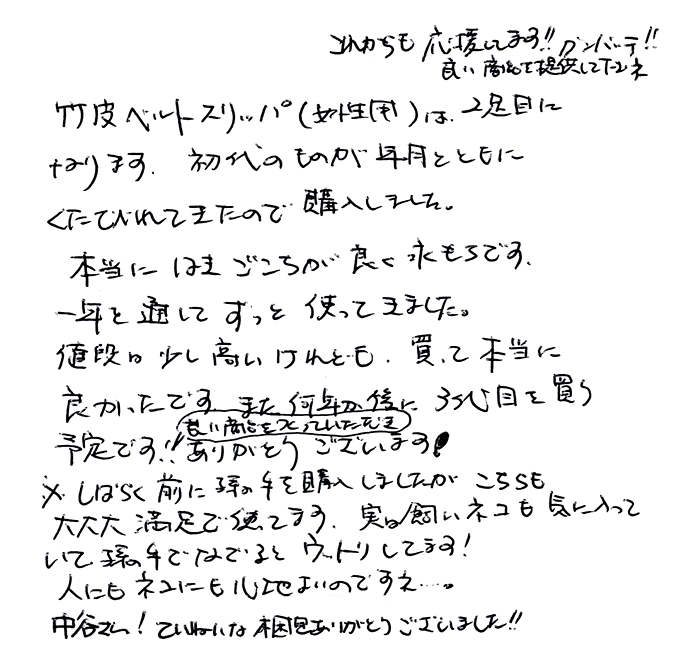 これからも 応援してます!! ガンバッテ!!
良い商品を提供して下さいネ
竹皮ベルトスリッパ(女性用)は、2足目に
なります。初代のものが年月とともに
くたびれてきたので購入しました。
本当にはきごこちが良く永もちです。
一年を通してずっと使ってきました。
値段は少し高いけれども、買って本当に
良かったです。また何年か後に3代目を買う
良い商品をつくっていただき
予定です!! ありがとうございます!
※しばらく前に孫の手を購入しましたがこちらも
大大大満足で使ってます。実は飼いネコも気に入って
いて孫の手でなでるとウットリしてます!
人にもネコにも心地よいのですネ……。
中谷さん!ていねいな梱包ありがとうございました!!